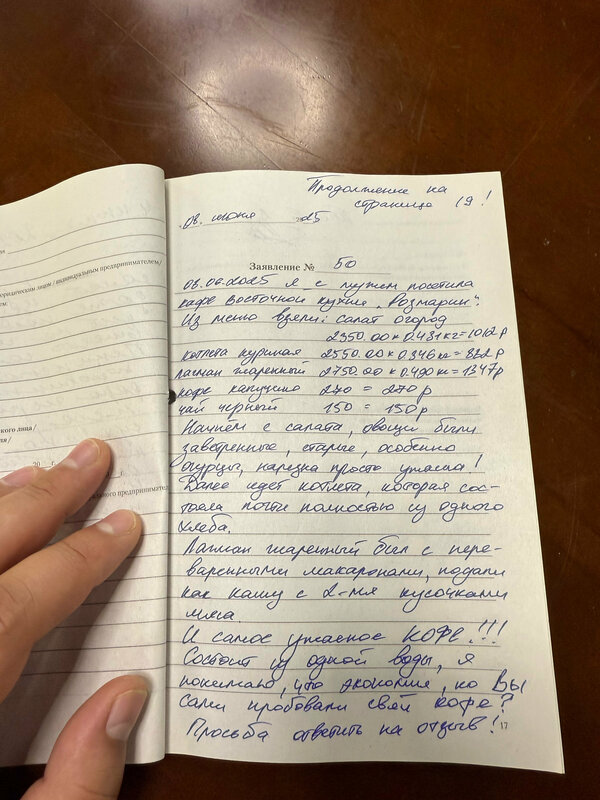 Продолжение на
странице 19!
08. июня 2025
Заявление № 50
08.06.2025 я с мужем посетила
кафе восточной кухни „Розмарин".
Из меню взяли: салат огород
2350.00 × 0.431кг = 1012р
котлета куриная 2550.00 × 0.346кг = 882р
лагман жаренный 2750.00 × 0.490кг = 1347р
кофе капучино 270 = 270р
чай черный 150 = 150р
Начнем с салата, овощи были
заветренные, старые, особенно
огурцы, нарезка просто ужасна!
Далее идет котлета, которая сос-
тояла почти полностью из одного
хлеба.
Лагман жаренный был с пере-
варенными макаронами, подали
как кашу с 2-мя кусочками
мяса.
И самое ужасное КОФЕ!!!
Состоит из одной воды, я
понимаю, что экономия, но Вы
сами пробовали свой кофе?
Просьба ответить на отзыв!
17
юридическим лицом / индивидуальным предпринимателем/
ского лица /
20 г.
г.